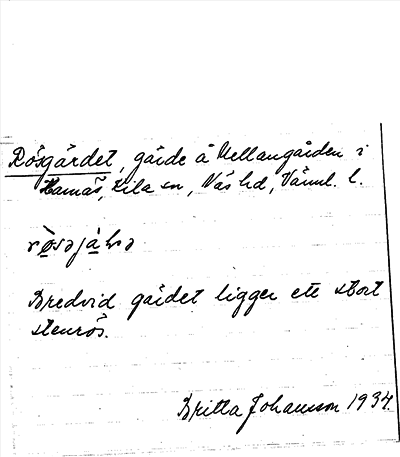 Rösgärdet, gärde å Mellangården i
Hamås, Kila sn, Näs hd, Värml. l.
Bredvid gärdet ligger ett stort
stenrös.
Britta Johansson 1934.